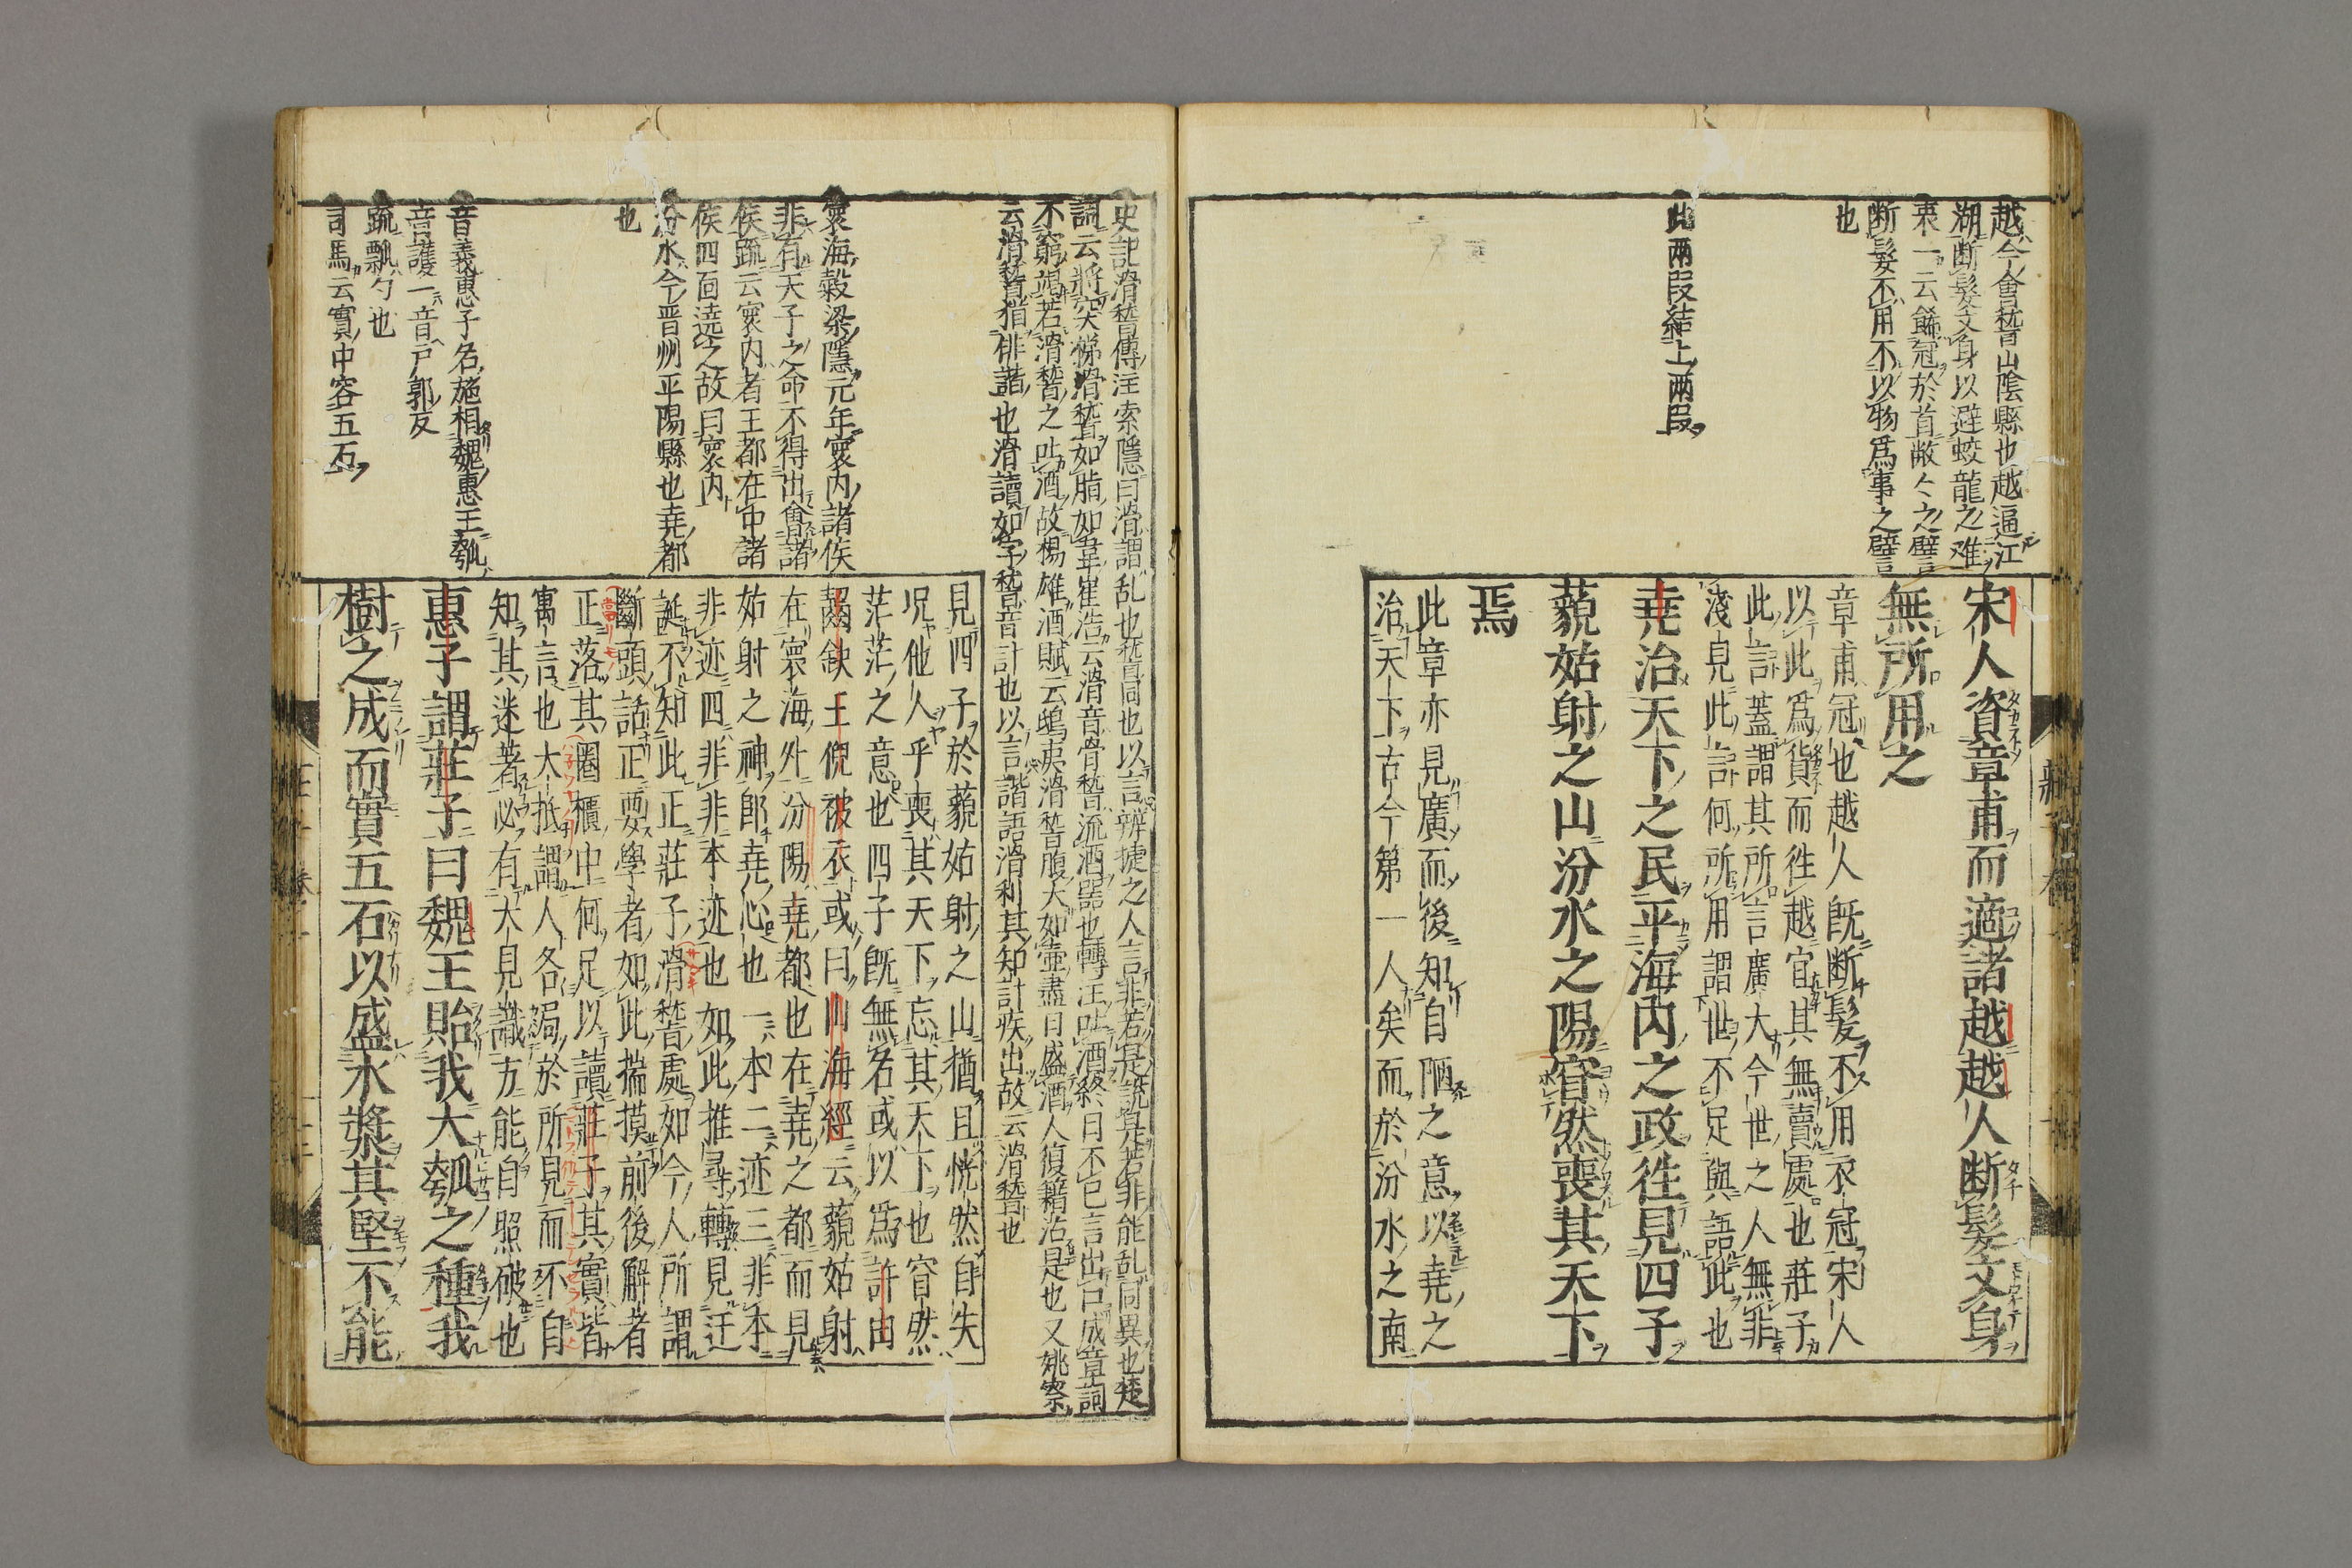 越今會稽山陰縣也越逼江
湖断髮文身以避蛟龍之难
衷一云鯑冠於首敝人之譬言
断髮不用不以物爲事之譬言
也
此兩段結上兩段
宋人資章甫而適諸越越人断髮文身
無所用之
章甫冠也越人既断髮不用衣冠宋人
以此爲貨而徃越宜其無賣處也莊子
此言蓋謂其所言廣大今世之人無非
淺見此言何所用謂世不足與語此也
堯治天下之民平海内之政徃見四子
藐姑射之山汾水之陽窅然喪其天下
焉
此章亦見廣而後知自陋之意以堯之
治天下古今第一人矣而於汾水之南
史記滑稽傳注索隱曰滑謂乱也稽同也以言辨捷之人言非若是說是若非能乱同異也楚
詞云將突梯滑稽如脂如韋崔浩云滑音骨稽流酒器也轉注吐酒終日不已言出口成章詞
不窮竭若滑稽之吐酒故楊雄酒賦云鴟夷滑稽腹大如壷盡日盛酒人復籍沽是也又姚察
云滑稽猶俳諧也滑讀如字稽音計也以言諧語滑利其知計疾出故云滑稽也
寰海穀梁隱元年寰内諸侯
非有天子之命不得出會諸
侯疏云寰内者王都在中諸
侯四面遶之故曰寰内
汾水今晋州平陽縣也堯都
也
音義惠子名施相魏惠王瓠
音護一音戸郭反
疏瓢勺也
司馬云實中容五石
見四子於藐姑射之山猶且恍然自失
况他人乎喪其天下忘其天下也窅然
茫茫之意也四子既無名或以爲許由
齧缺王倪被衣或曰山海經云藐姑射
在寰海外汾陽堯都也在堯之都而見
姑射之神即堯心也一本二迹三非本
非迹四非非本迹也如此推尋轉見迂
誕不知此正莊子滑稽處如今人所謂
斷頭話正要學者如此揣摸前後解者
正落其圈櫃中何足以讀莊子其實皆
寓言也大抵謂人各局於所見而不自
知其迷著必有大見識方能自照破也
惠子謂莊子曰魏王貽我大瓠之種我
樹之成而實五石以盛水漿其堅不能